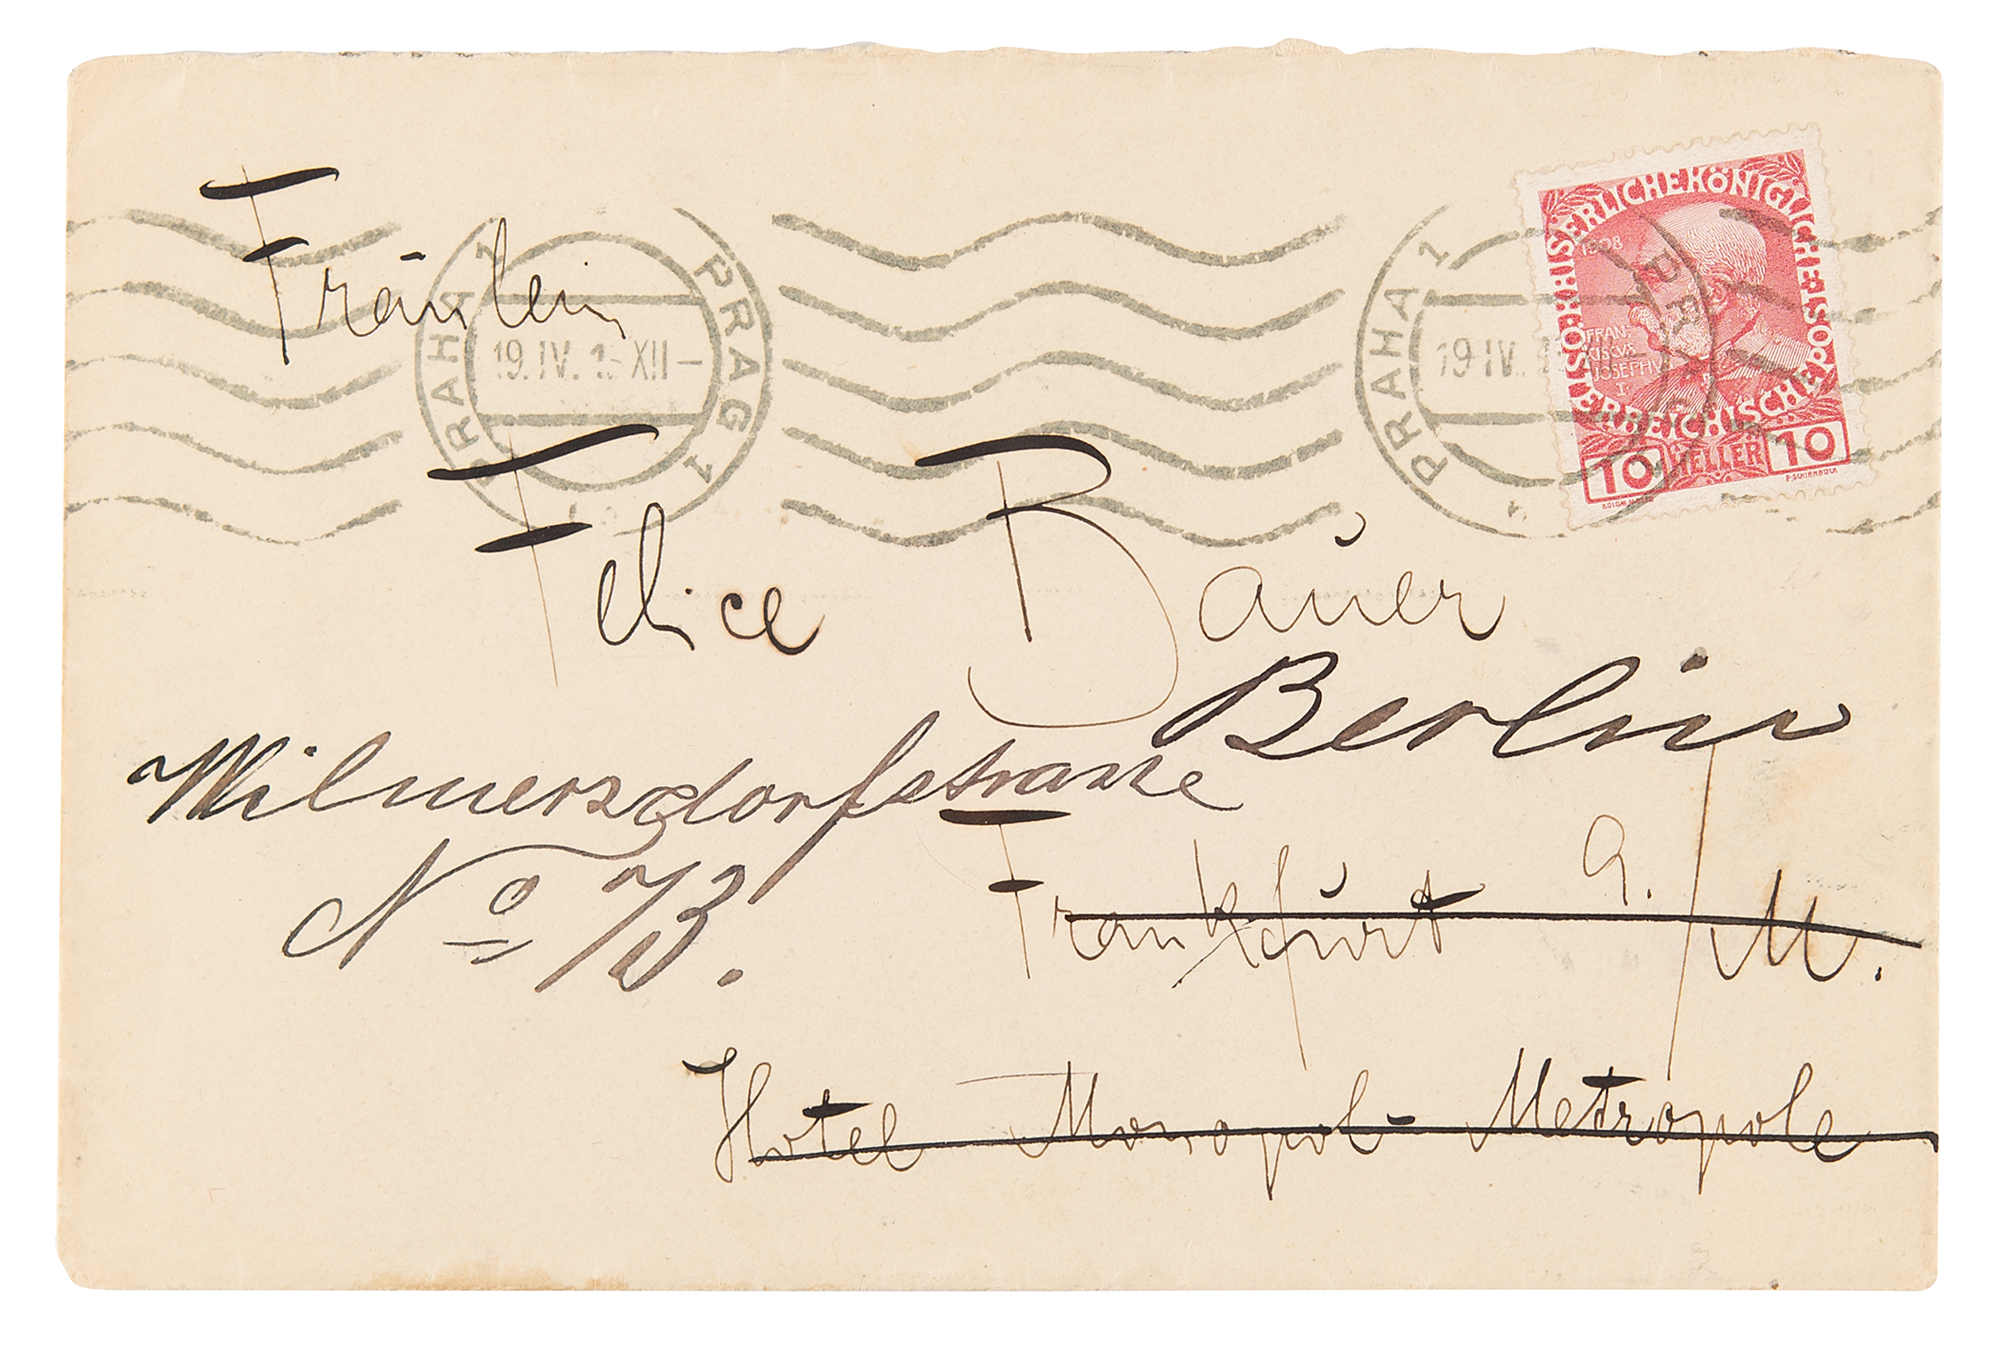 Fräulein
PRAHA 1 PRAG 1
19.IV.13 XII–
PRAHA 1 PRAG
19 IV. 13
KAISERLICHE KÖNIGLICHE ÖSTERREICHISCHE POST
1908
FRAN-
CISCVS
IOSEPHVS
I
10 HELLER 10
Felice Bauer
Berlin
Wilmersdorfstrasse
No 73.
Frankfurt a./M.
Hotel Monopol-Metropole